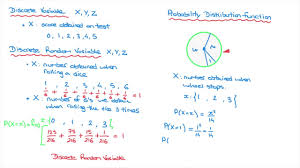 Discrete Variable X, Y, Z
• X: score obtained on test
0, 1, 2, 3, 4, 5
Discrete Random Variable X, Y, Z
• X: number obtained when
rolling a dice
1, 2, 3, 4, 5, 6
1/6 + 1/6 + 1/6 + 1/6 + 1/6 + 1/6 = 1
• X: number of 5's we obtain
when rolling the die 3 times
0, 1, 2, 3
125/216 + 75/216 + 15/216 + 1/216 = 1
Discrete Random Variable
Probability Distribution Function
X: number obtained when
wheel stops
x: {1, 2, 3}
P(X=1) =
P(